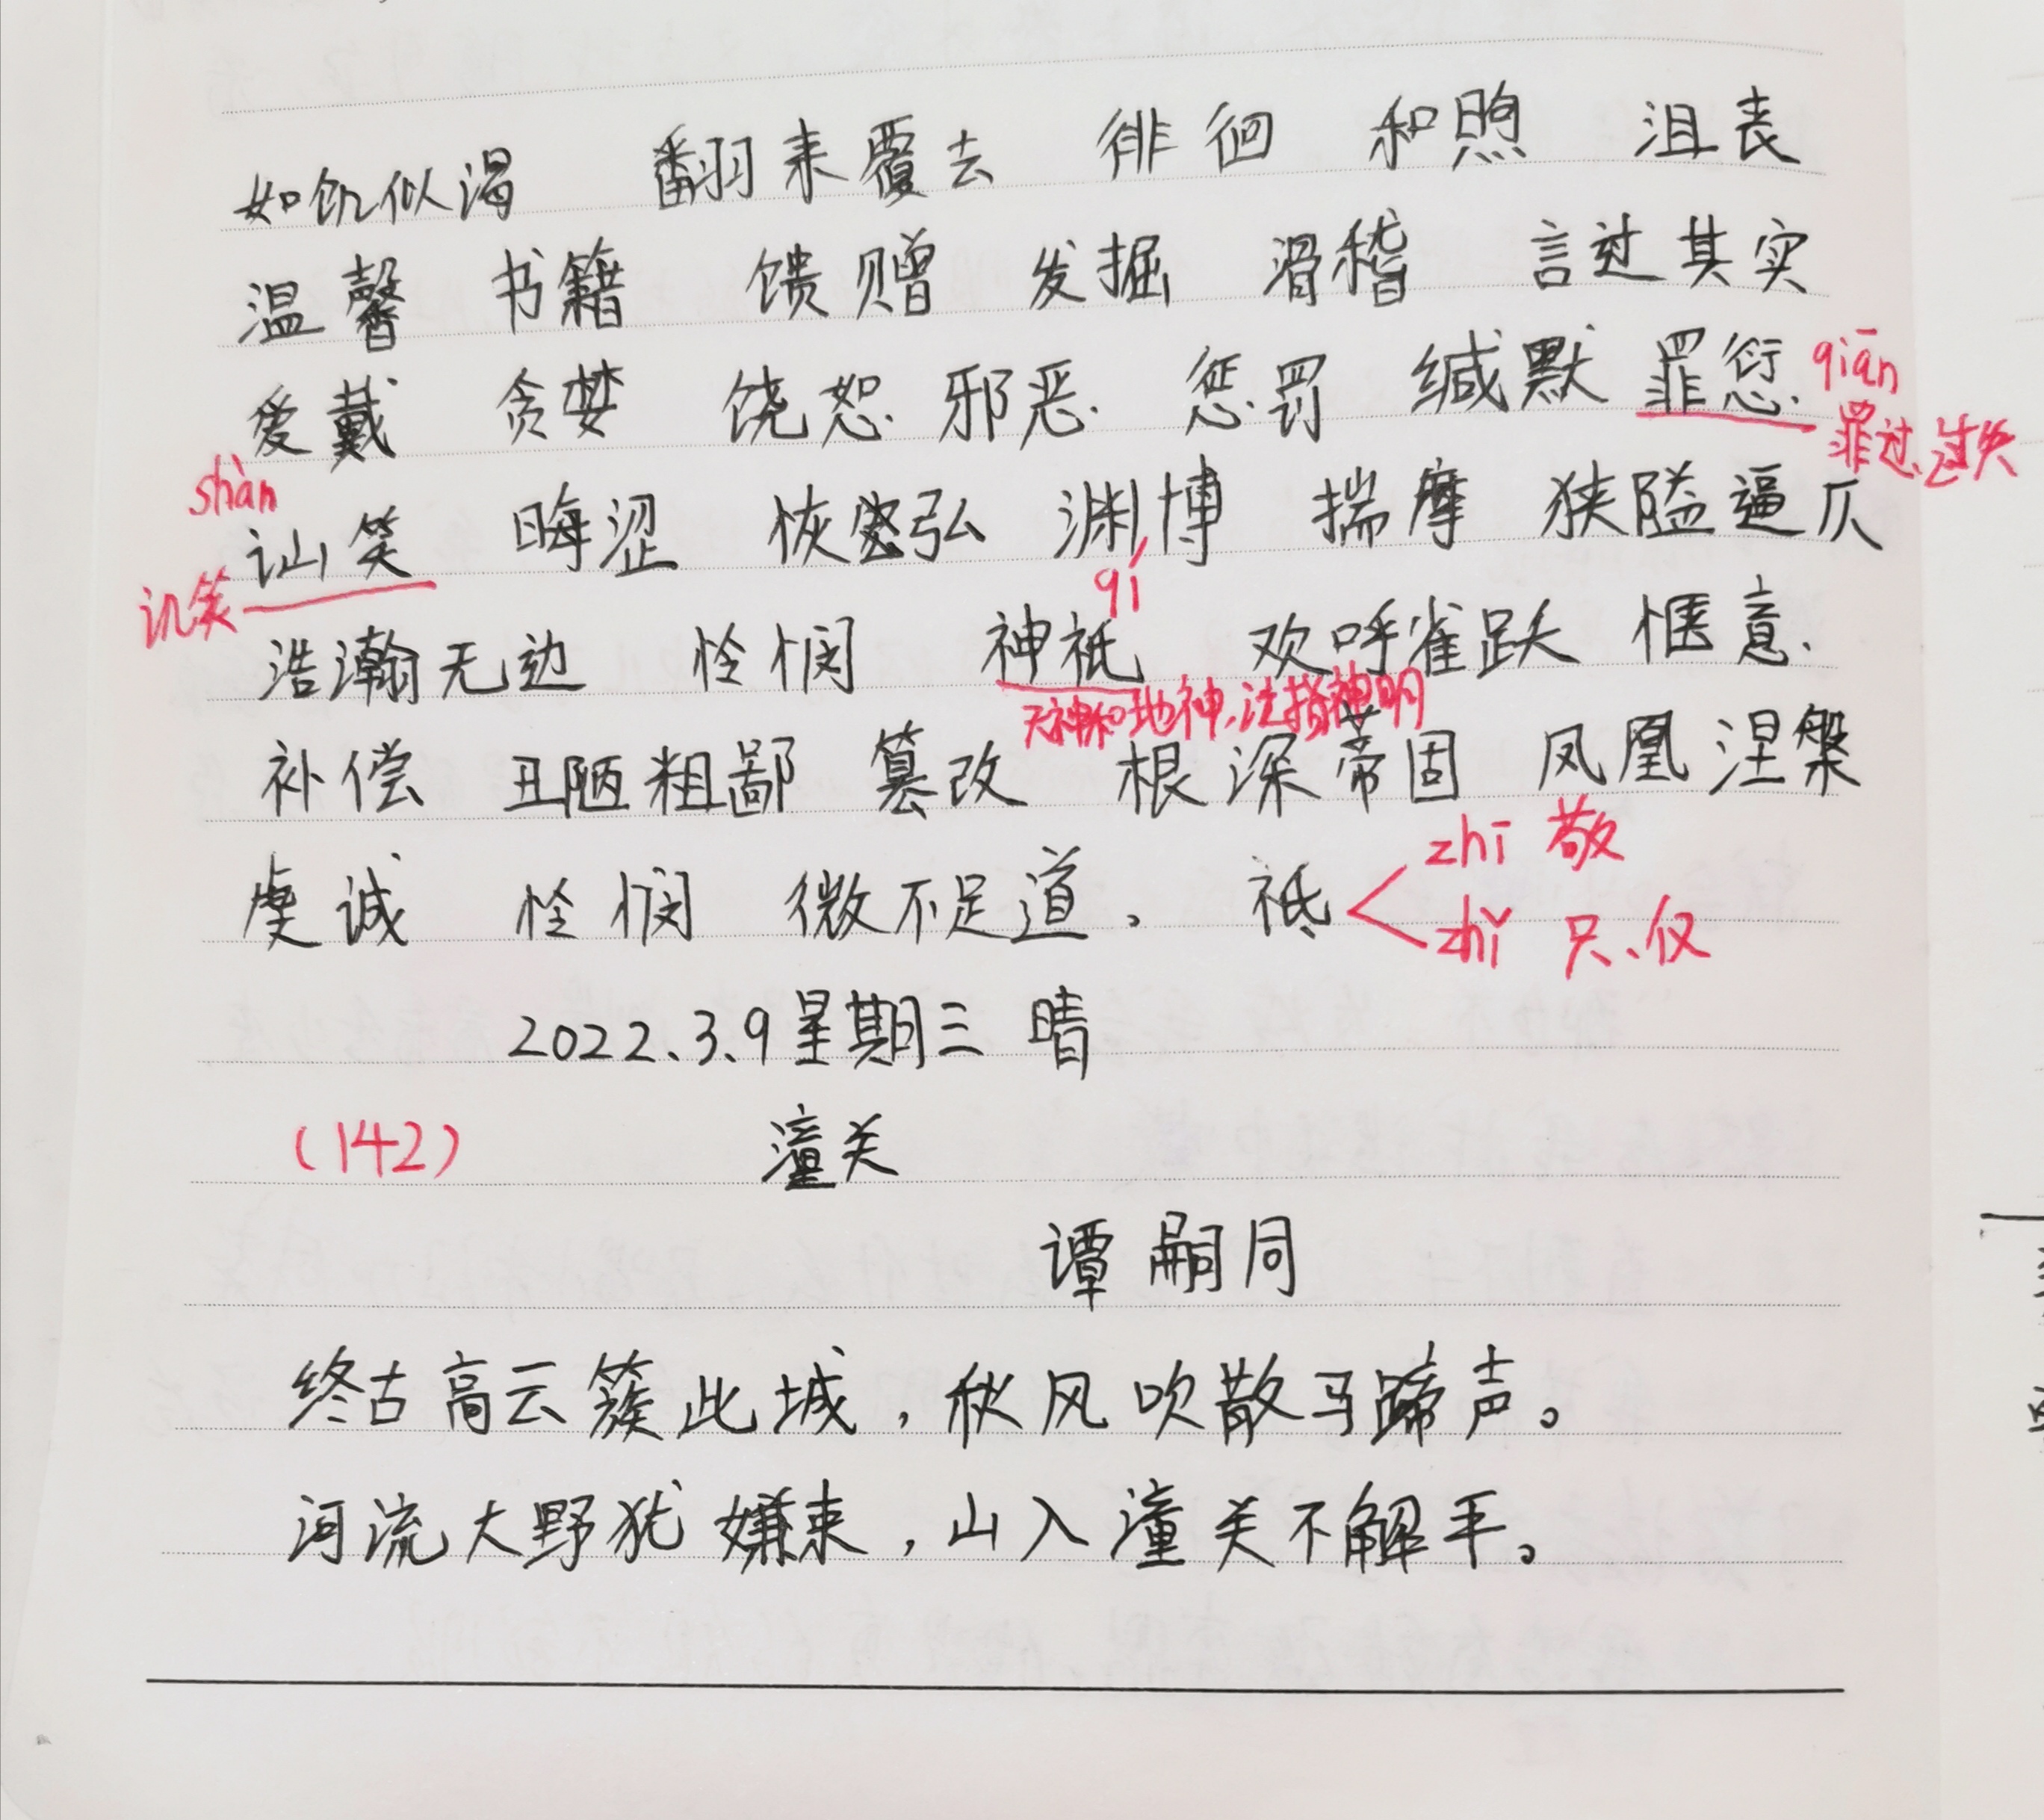 如饥似渴 翻来覆去 徘徊 和煦 沮丧
温馨 书籍 馈赠 发掘 滑稽 言过其实
爱戴 贪婪 饶恕 邪恶 惩罚 缄默 罪愆 qiān
罪过、过失
shàn
讪笑 晦涩 恢弘 渊博 揣摩 狭隘逼仄
讥笑
qí
浩瀚无边 怜悯 神祇 欢呼雀跃 惬意
天神和地神,泛指神明
补偿 丑陋粗鄙 篡改 根深蒂固 凤凰涅槃
虔诚 怜悯 微不足道。 祗
zhī 敬
zhǐ 只、仅
2022.3.9星期三 晴
(142) 潼关
谭嗣同
终古高云簇此城,秋风吹散马蹄声。
河流大野犹嫌束,山入潼关不解平。